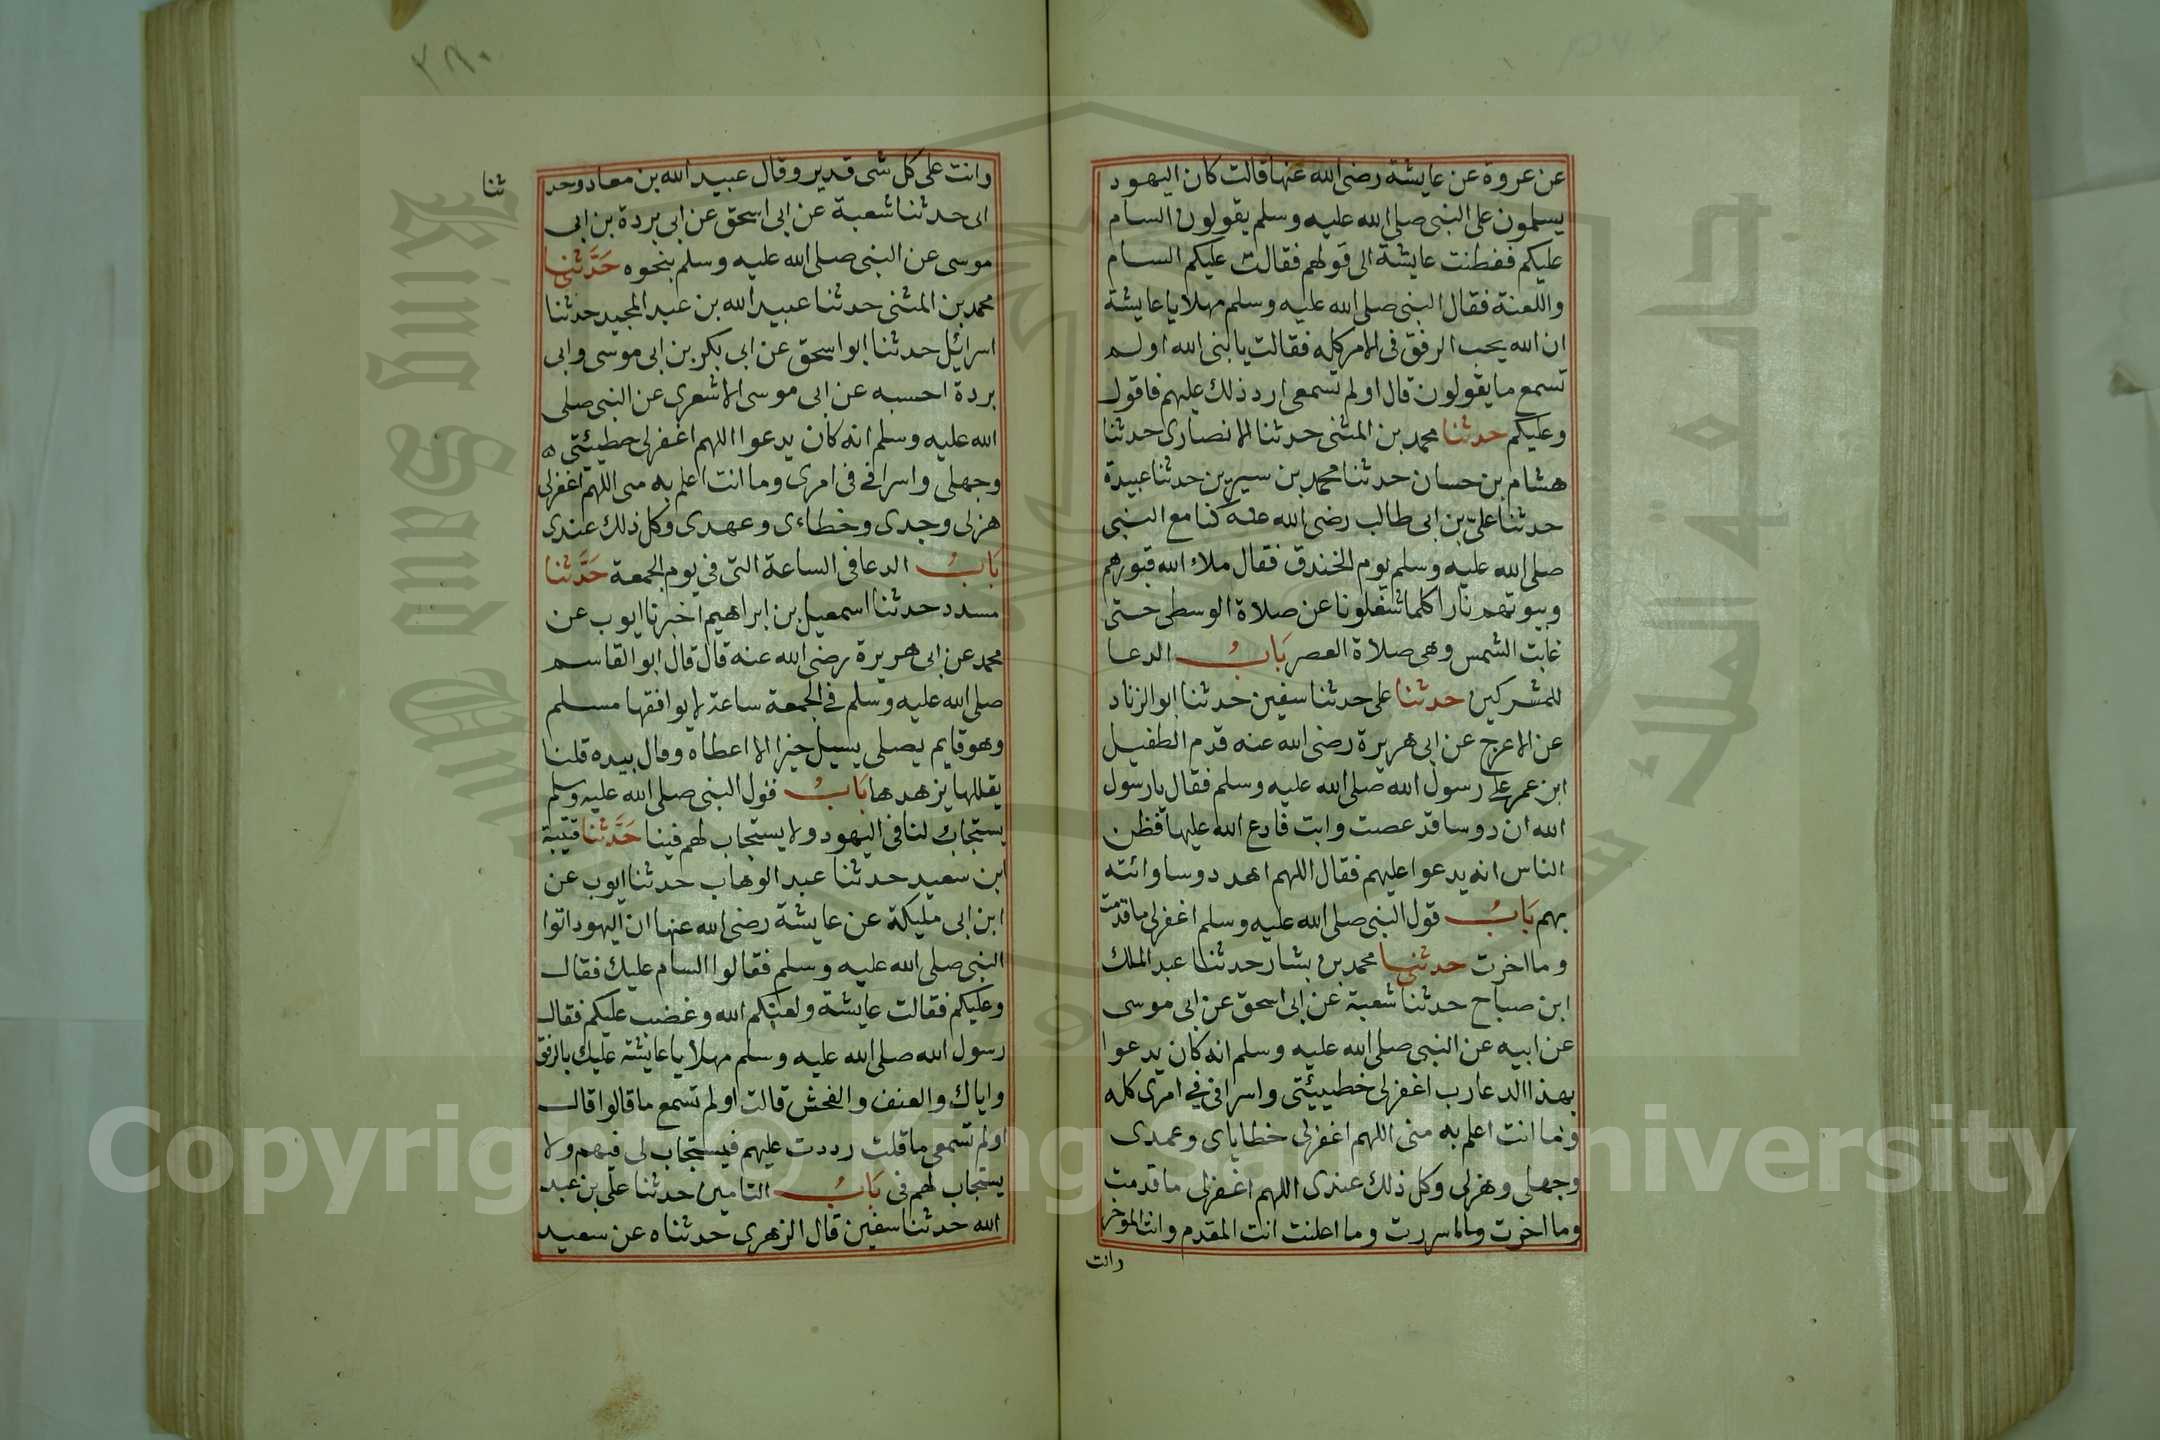 عن عروة عن عايشة رضى الله عنها قالت كان اليهود
يسلمون على النبى صلى الله عليه وسلم يقولون السام
عليكم ففطنت عايشة الى قولهم فقالت عليكم السام
واللعنة فقال النبى صلى الله عليه وسلم مهلا يا عايشة
ان الله يحب الرفق فى الامر كله فقالت يا نبى الله اولم
تسمع ما يقولون قال اولم تسمعى ارد ذلك عليهم فاقول
وعليكم حدثنا محمد بن المثنى حدثنا الانصارى حدثنا
هشام بن حسان حدثنا محمد بن سيرين حدثنا عبيدة
حدثنا على بن ابى طالب رضى الله عنه كنا مع النبى
صلى الله عليه وسلم يوم الخندق فقال ملاء الله قبورهم
وبيوتهم نارا كلما شغلونا عن صلاة الوسطى حتى
غابت الشمس وهى صلاة العصر باب الدعا
للمشركين حدثنا على حدثنا سفين حدثنا ابو الزناد
عن الاعرج عن ابى هريرة رضى الله عنه قدم الطفيل
ابن عمر على رسول الله صلى الله عليه وسلم فقال يا رسول
الله ان دوسا قد عصت وابت فادع الله عليها فظن
الناس انه يدعوا عليهم فقال اللهم اهد دوسا وائته
بهم باب قول النبى صلى الله عليه وسلم اغفرلى ما قدمت
وما اخرت حدثنى محمد بن بشار حدثنا عبد الملك
ابن صباح حدثنا شعبة عن ابى اسحق عن ابى موسى
عن ابيه عن النبى صلى الله عليه وسلم انه كان يدعوا
بهذا الدعا رب اغفرلى خطييئتى واسرافى فى امرى كله
وما انت اعلم به منى اللهم اغفرلى خطاياى وعمدى
وجهلى وهزلى وكل ذلك عندى اللهم اغفرلى ما قدمت
وما اخرت وما اسررت وما اعلنت انت المقدم وانت الموخر
وانت
٢٨٠
وانت على كل شى قدير وقال عبيد الله بن معاد وحد
ثنا
ابى حدثنا شعبة عن ابى اسحق عن ابى بردة بن ابى
موسى عن النبى صلى الله عليه وسلم بنحوه حدثنا
محمد بن المثنى حدثنا عبيد الله بن عبد المجيد حدثنا
اسرائيل حدثنا ابو اسحق عن ابى بكر بن ابى موسى وابى
بردة احسبه عن ابى موسى الاشعرى عن النبى صلى
الله عليه وسلم انه كان يدعوا اللهم اغفرلى خطيئتى
وجهلى واسرافى فى امرى وما انت اعلم به منى اللهم اغفرلى
هزلى وجدى وخطاءى وعهدى وكل ذلك عندى
باب الدعا فى الساعة التى فى يوم الجمعة حدثنا
مسدد حدثنا اسمعيل بن ابراهيم اخبرنا ايوب عن
محمد عن ابى هريرة رضى الله عنه قال قال ابو القاسم
صلى الله عليه وسلم فى الجمعة ساعة لا يوافقها مسلم
وهو قايم يصلى يسيل خيرا الا اعطاه وقال بيده قلنا
يقللها يزهدها باب قول النبى صلى الله عليه وسلم
يستجاب لنا فى اليهود ولا يستجاب لهم فينا حدثنا قتيبة
ابن سعيد حدثنا عبد الوهاب حدثنا ايوب عن
ابن ابى مليكة عن عايشة رضى الله عنها ان اليهود اتوا
النبى صلى الله عليه وسلم فقالوا السام عليك فقال
وعليكم فقالت عايشة ولعنكم الله وغضب عليكم فقال
رسول الله صلى الله عليه وسلم مهلا يا عايشة عليك بالرفق
واياك والعنف والفحش قالت اولم تسمع ما قالوا قال
اولم تسمعى ما قلت رددت عليهم فيستجاب لى فيهم ولا
يستجاب لهم فى باب التامين حدثنا على بن عبد
الله حدثنا سفين قال الزهرى حدثناه عن سعيد
King Saud University
جامعة الملك سعود
Copyright © King Saud University